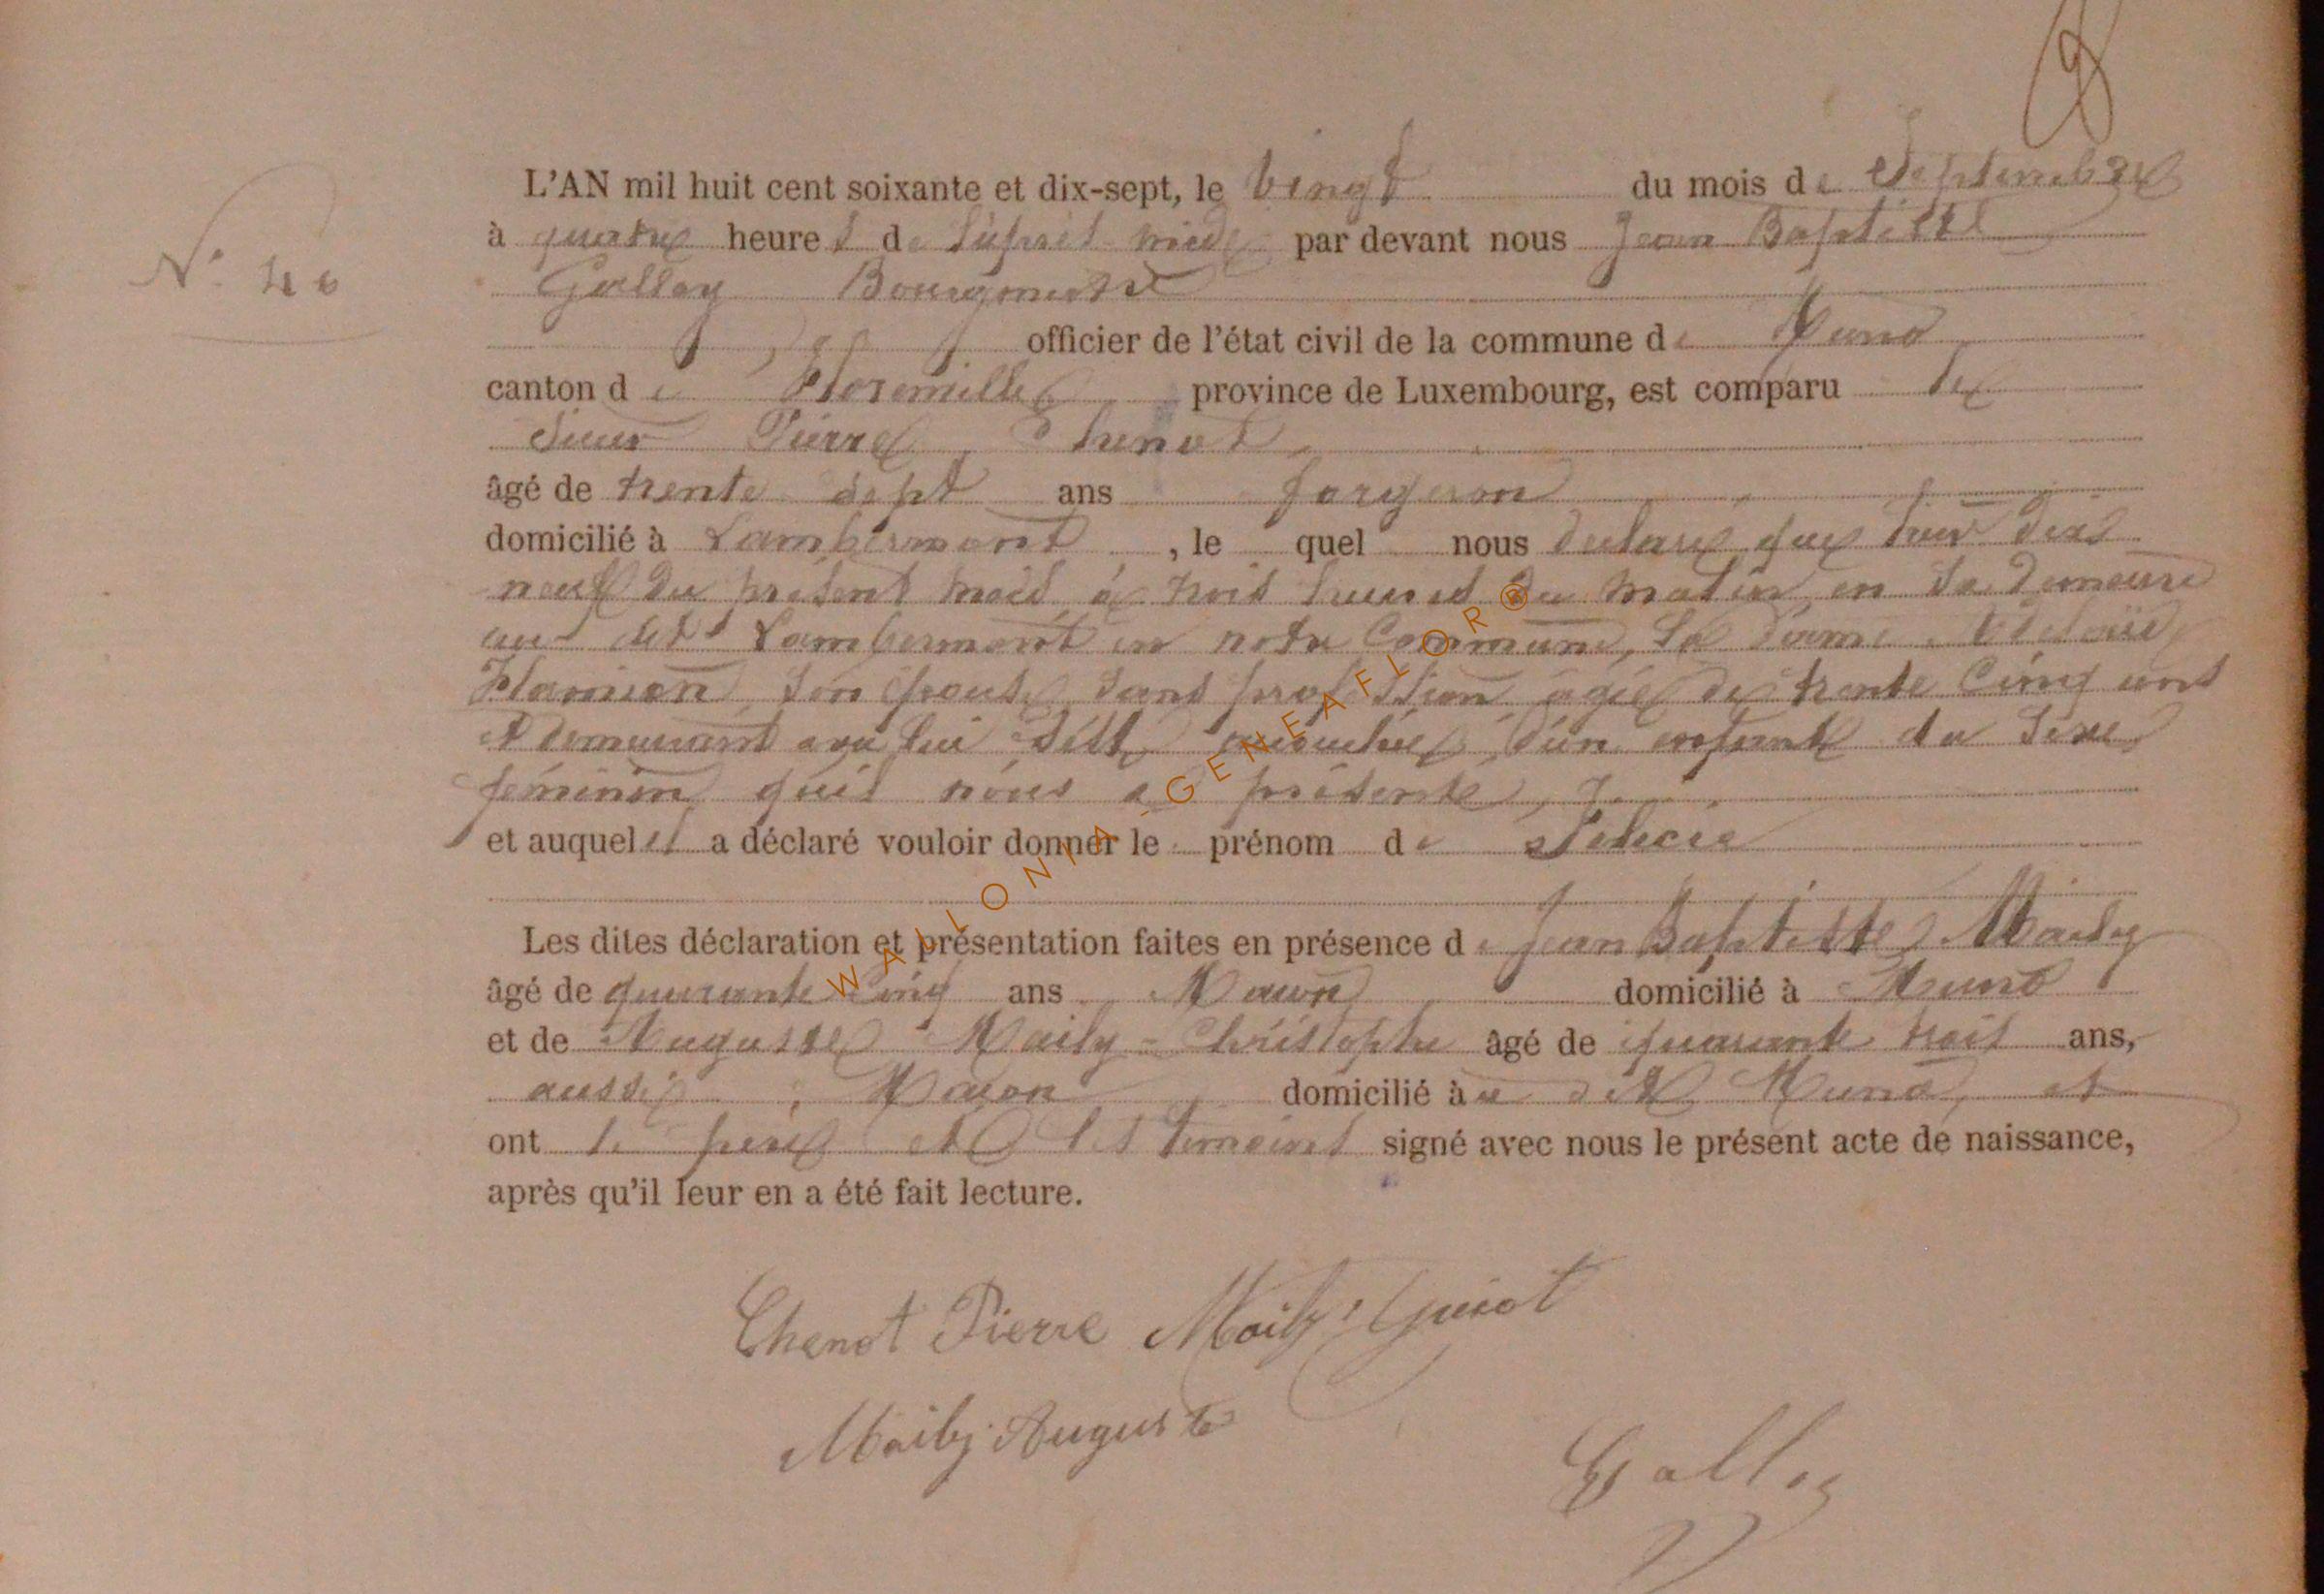 8
L'AN mil huit cent soixante et dix-sept, le vingt du mois de Septembre
N° 40
à quatre heures de l'après midi par devant nous Jean Baptiste
Galloy Bourgmestre
officier de l'état civil de la commune de Muno
canton de Florenville province de Luxembourg, est comparu le
Sieur Pierre Chenot
âgé de trente sept ans forgeron
domicilié à Lambermont, le quel nous déclaré que hier dix
neuf du présent mois à trois heures du matin, en sa demeure
au dit Lambermont en notre Commune, la dame Adelaïde
Flamion, son épouse, sans profession âgée de trente cinq ans
et demeurant avec lui s'est accouchée, d'un enfant du sexe
féminin qu'il nous a présenté,
et auquel il a déclaré vouloir donner le prénom de Felicie
Les dites déclaration et présentation faites en présence de Jean Baptiste Maily
âgé de quarante cinq ans Maçon domicilié à Muno
et de Auguste Maily-Christophe âgé de quarante trois ans,
aussi Maçon domicilié au dit Muno, et
ont le père et les témoins signé avec nous le présent acte de naissance,
après qu'il leur en a été fait lecture.
Chenot Pierre Maily Guiot
Maily Auguste
Galloy
WALLONIA-GENEAFLOR®